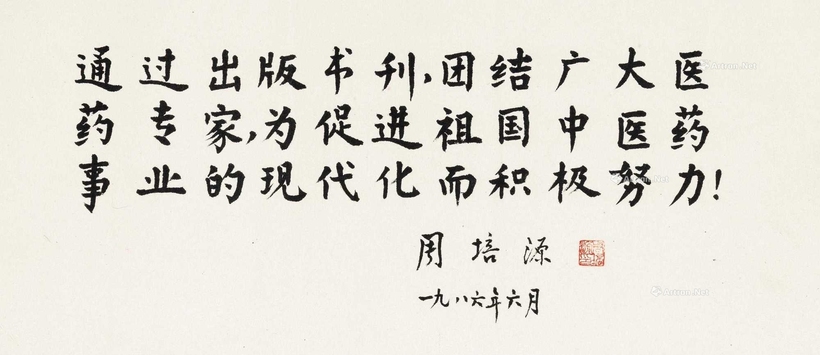 通过出版书刊,团结广大医
药专家,为促进祖国中医药
事业的现代化而积极努力!
周培源
一九八六年六月